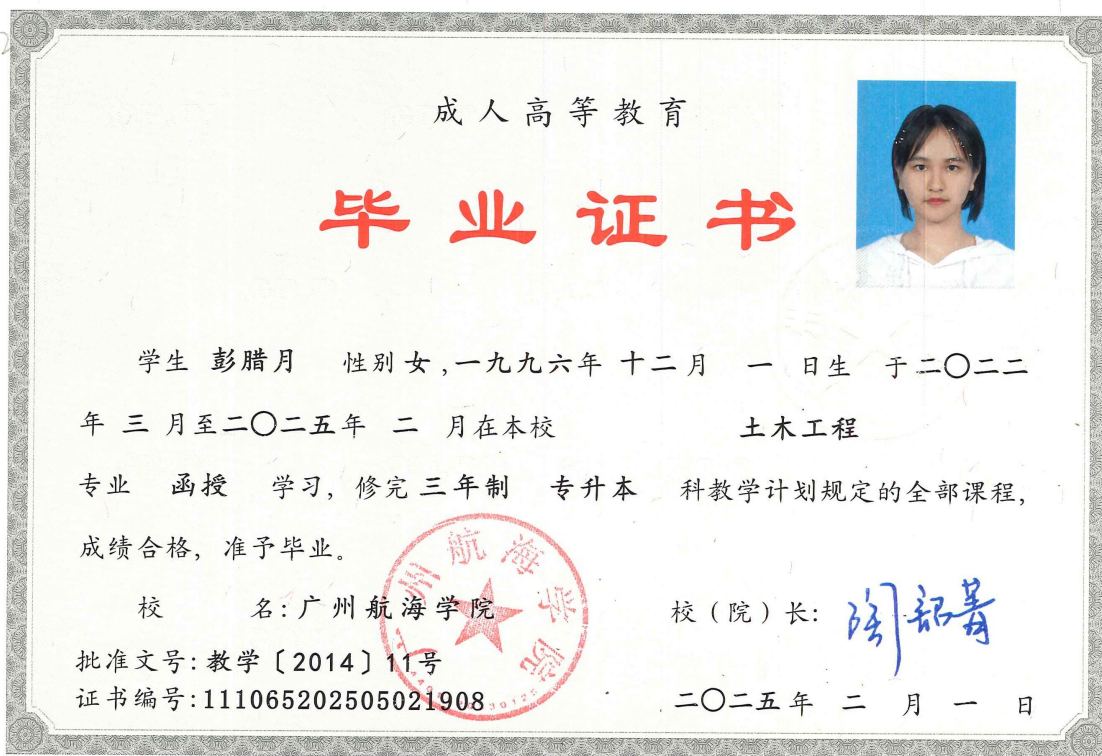 成人高等教育
毕业证书
学生 彭腊月 性别 女,一九九六年 十二月 一 日生 于二〇二二
年 三 月至二〇二五年 二 月在本校 土木工程
专业 函授 学习, 修完 三年制 专升本 科教学计划规定的全部课程,
成绩合格, 准予毕业。
校 名: 广州航海学院 校(院)长:
广州航海学院
批准文号: 教学〔2014〕11号
证书编号:111065202505021908 二〇二五年 二 月 一 日